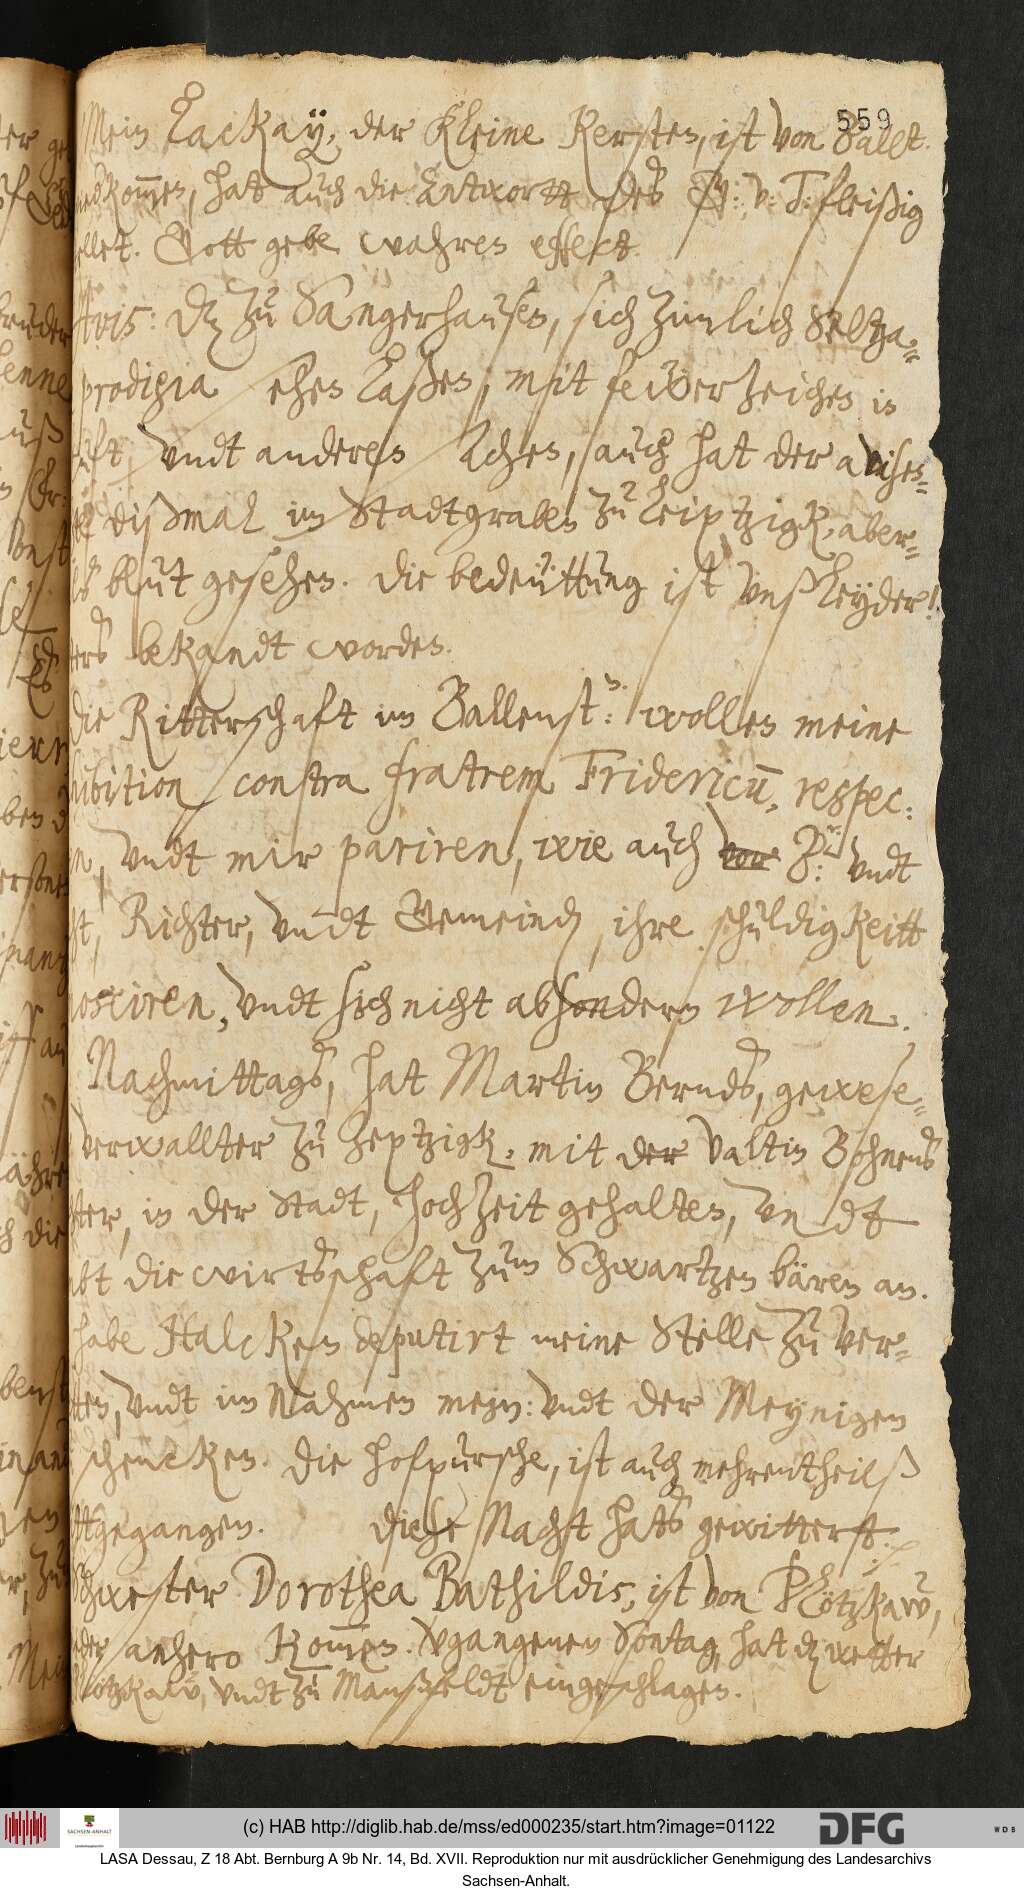 559
Mein Lackay, der Kleine Kersten, ist von Ballst.
kom̅en, hat auch die Antwortt des H: v. T. fleißig
ellet. Gott gebe wahren effect.
Avis: dz zu Sangerhausen, sich zimlich Seltza-
prodigia sehen laßen, mit fewerzeichen in
luft, undt anderen sachen, auch hat der avisen-
dißmal im Stadtgraben zu Leiptzigk, aber-
blut gesehen. Die bedeüttung ist unß leyder!
bekandt worden.
Die Ritterschaft im Ballenst: wollen meine
hibition contra fratrem Fridericum̅, respec:
undt mir pariren, wie auch vor B: undt
Richter, undt Gemeinde, ihre schuldigkeitt
undt sich nicht absondern wollen.
Nachmittags, hat Martin Bernds, gewese-
verwallter zu Zeptzigk, mit der Valtin Bohnens
ter, in der Stadt, hochzeit gehalten, undt
die wirtschaft zum Schwartzen bären an.
habe Halcken deputirt meine Stelle zu ver-
ten, undt im Nahmen mein: undt der Meynigen
schencken. Die hofpursche, ist auch mehrentheilß
ttgegangen. Diese Nacht hats gewittert.
Schwester Dorothea Bathildis, ist von Plötzkaw,
anhero kom̅en. Vergangenen Sontag, hat dz wetter
Plötzkaw, undt zu Manßfeldt eingeschlagen.
(c) HAB http://diglib.hab.de/mss/ed000235/start.htm?image=01122
SACHSEN-ANHALT
DFG
WDB
LASA Dessau, Z 18 Abt. Bernburg A 9b Nr. 14, Bd. XVII. Reproduktion nur mit ausdrücklicher Genehmigung des Landesarchivs
Sachsen-Anhalt.